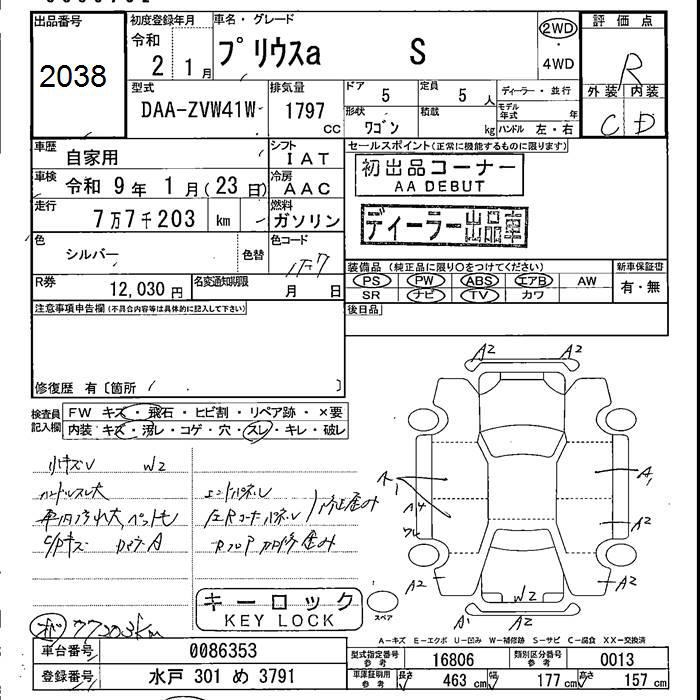 出品番号
2038
初度登録年月
令和
2 1月
車名・グレード
プリウスa S
2WD
4WD
評価点
R
外装 内装
C D
型式
DAA-ZVW41W
排気量
1797
CC
ドア
5
定員
5 人
形状
ワゴン
積載
kg
ディーラー・並行
モデル年式 年
ハンドル 左・右
車歴
自家用
シフト
IAT
車検
令和 9年 1月(23日)
冷房
AAC
走行
7万7千203 km
燃料
ガソリン
セールスポイント(正常に機能するものに限ります)
初出品コーナー
AA DEBUT
ディーラー出品車
色
シルバー
色替
色コード
1F7
R券
12,030円
名変通知期限
月 日
装備品(純正品に限り○をつけてください)
PS PW ABS エアB AW
SR ナビ TV カワ
新車保証書
有・無
注意事項申告欄(不具合内容等は具体的に記入して下さい)
後日品
修復歴 有〔箇所
検査員
記入欄
FW キズ・飛石・ヒビ割・リペア跡・×要
内装 キズ・汚レ・コゲ・穴・スレ・キレ・破レ
小キズU W2
ハンドルスレ大
エンドパネル
車内汚れ大,ペット毛
左Rコーナーパネル
修正歪み
C/Pキズ
A2 A2
A1
A4
A2
A2 A2
W2
A1 A2
77203km
キーロック
KEY LOCK
スペア
A-キズ E-エクボ U-凹み W-補修跡 S-サビ C-腐食 XX-交換済
車台番号
0086353
登録番号
水戸 301 め 3791
型式指定番号
参考
16806
類別区分番号
参考
0013
車庫証明用
参考
長さ
463 cm
幅
177 cm
高さ
157 cm